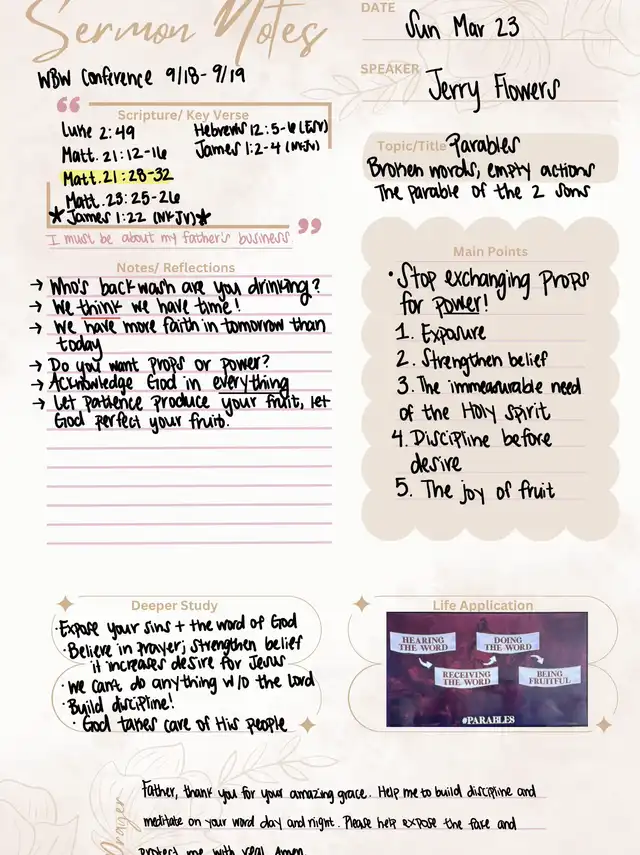 Sermon Notes
DATE
Sun Mar 23
WBW Conference 9/18-9/19
SPEAKER
Jerry Flowers
Scripture/ Key Verse
Luke 2:49
Matt. 21:12-16
Matt. 21:28-32
Matt. 23:25-26
★James 1:22 (NKJV)★
Hebrews 12:5-6 (ESV)
James 1:2-4 (NKJV)
I must be about my father's business
Topic/Title Parables
Broken words, empty actions
The parable of the 2 sons
Notes/ Reflections
→ Who's backwash are you drinking?
→ We think we have time!
→ We have more faith in tomorrow than
today
→ Do you want props or power?
→ Acknowledge God in everything
→ Let patience produce your fruit, let
God perfect your fruit.
Main Points
• Stop exchanging props
for power!
1. Exposure
2. Strengthen belief
3. The immeasurable need
of the Holy spirit
4. Discipline before
desire
5. The joy of fruit
Deeper Study
• Expose your sins + the word of God
• Believe in prayer; strengthen belief
it increases desire for Jesus
• We can't do anything w/o the Lord
• Build discipline!
• God takes care of His people
Life Application
HEARING
THE WORD
RECEIVING
THE WORD
DOING
THE WORD
BEING
FRUITFUL
#PARABLES
Prayer
Father, thank you for your amazing grace. Help me to build discipline and
meditate on your word day and night. Please help expose the fake and
protect me with real. Amen.